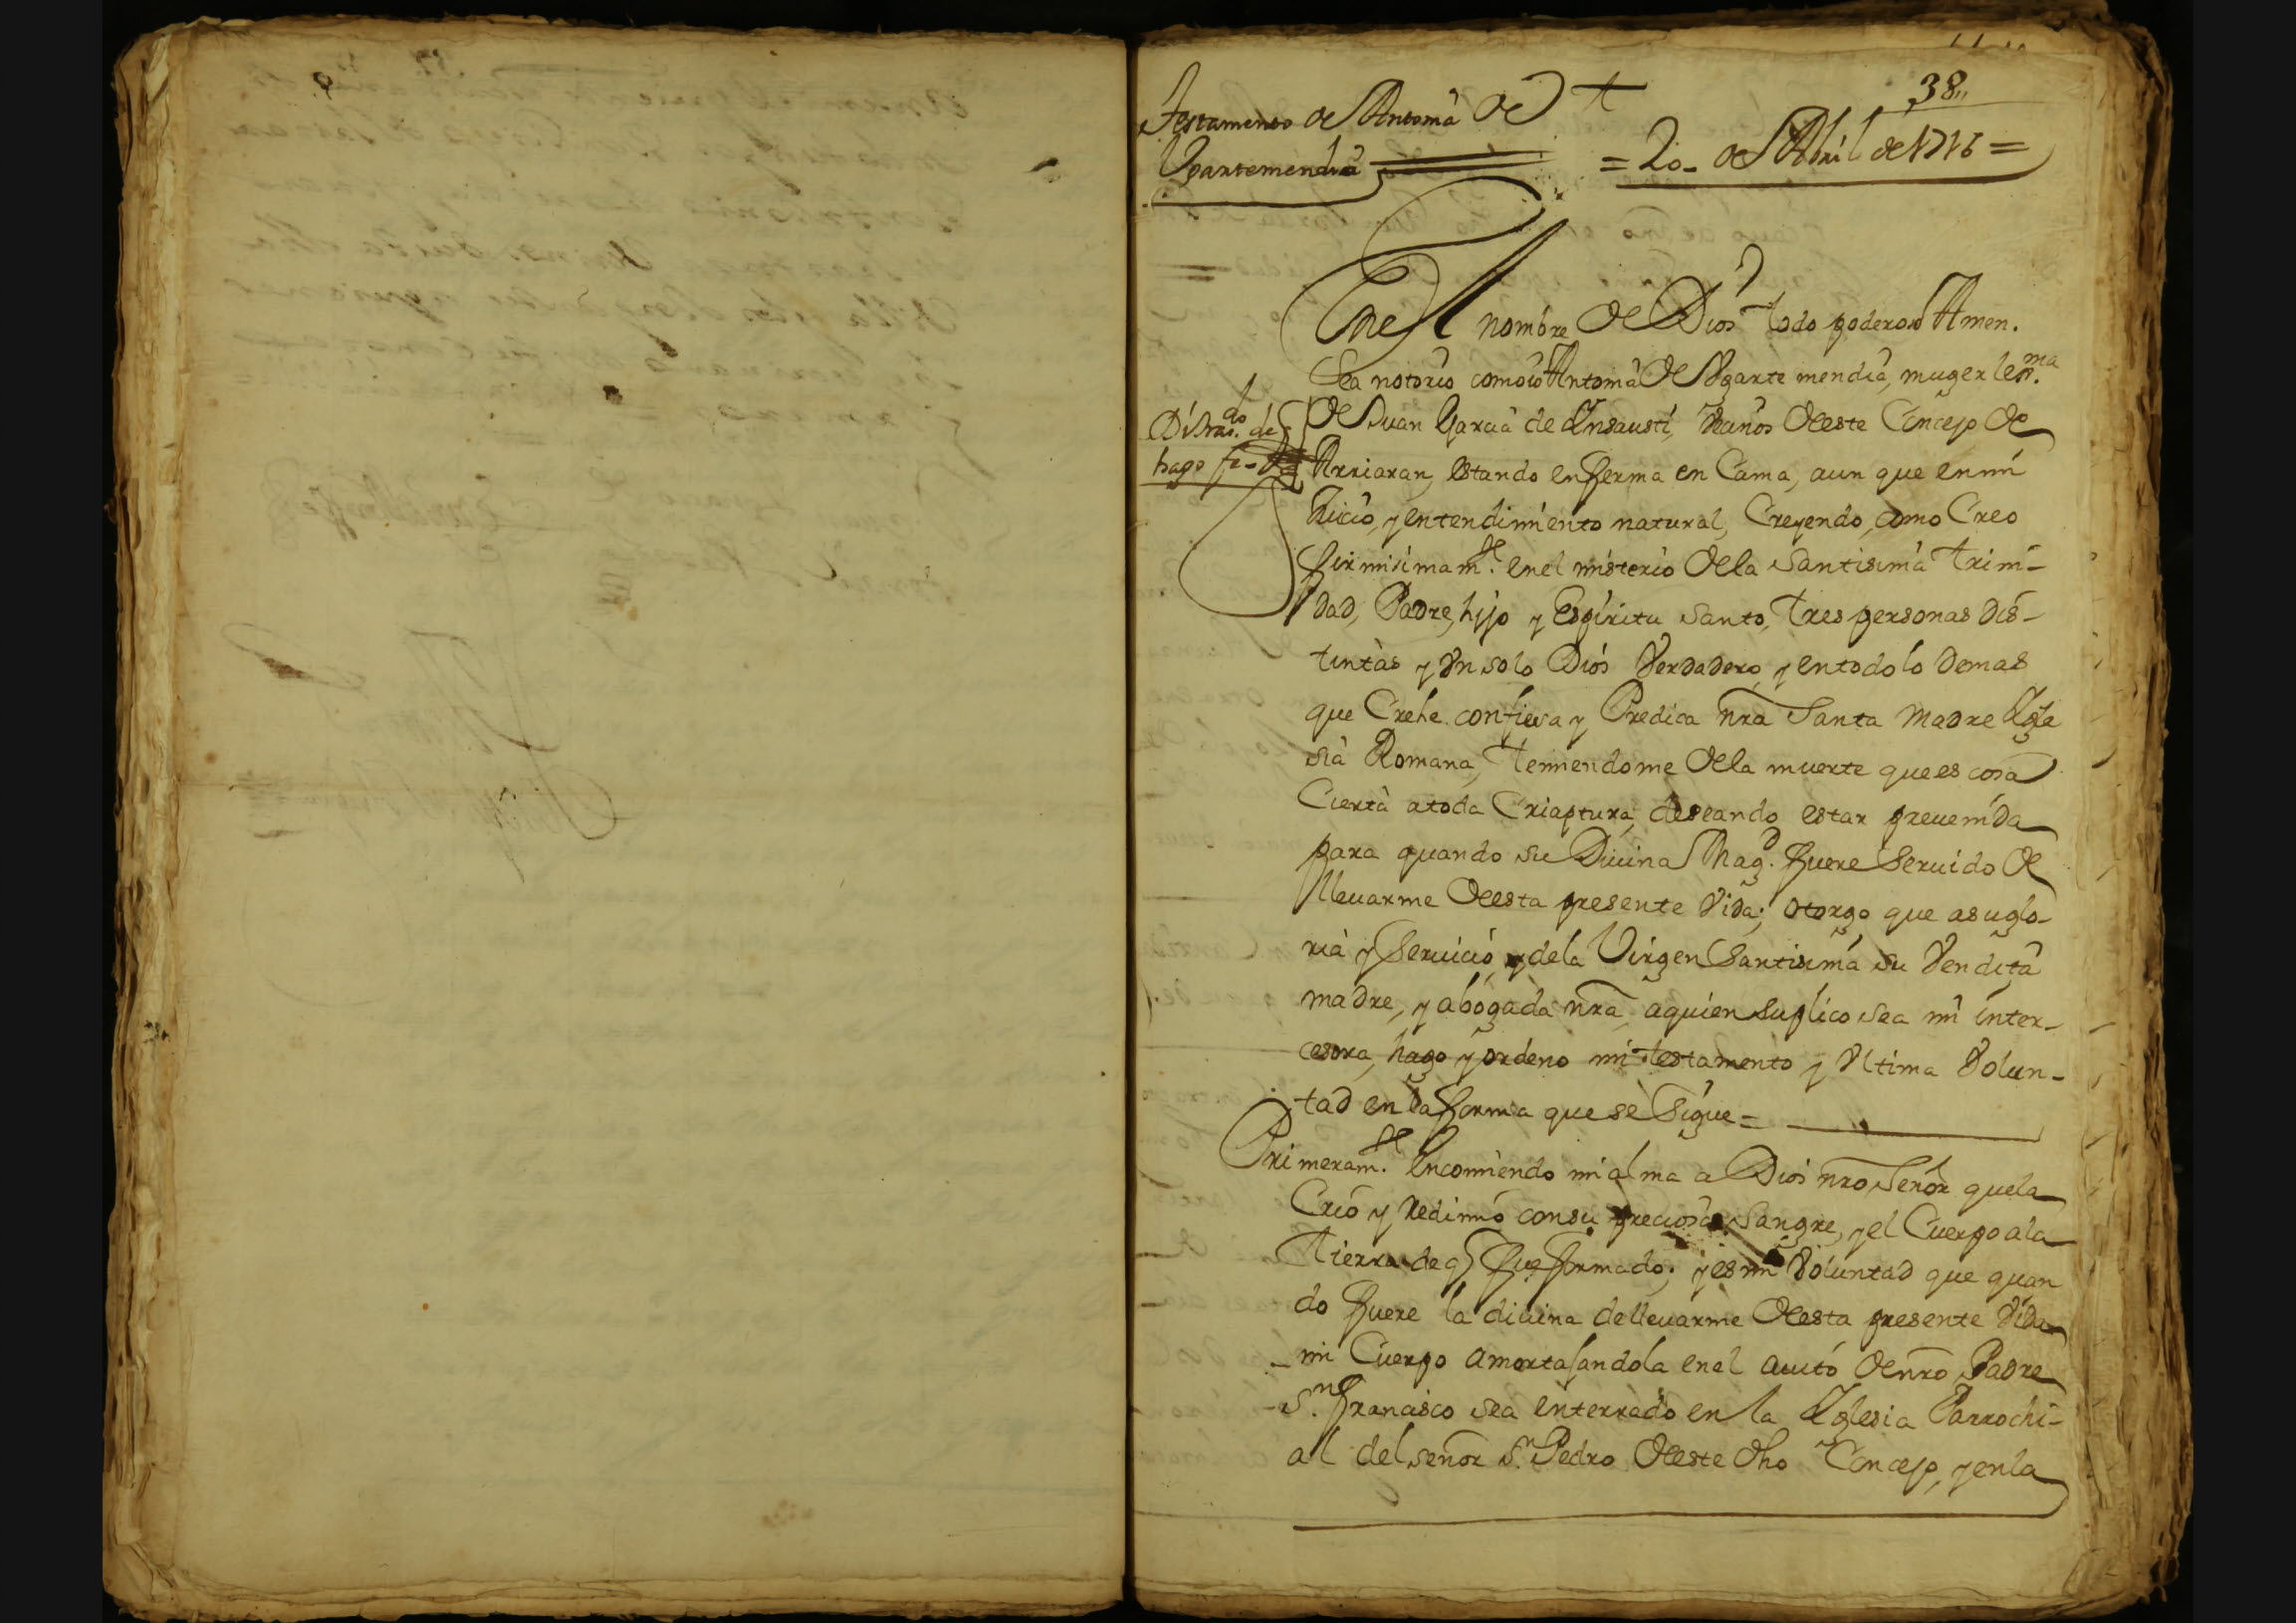 38
Testamento de Antonia de
Ugartemendia
= 20 de Abril de 1716 =
En el nombre de Dios todo poderoso Amen.
Sea notorio como io Antonia de Ugarte mendia, muger legma
de Juan Garcia de Insausti, vecinos deeste Concejo de
do de
hago fe
Arriaran, estando enferma en Cama, aun que en mi
Juicio, y entendimiento natural, Creyendo, como Creo
firmisimamte. enel misterio dela Santisima Trini-
dad, Padre, hijo y Espiritu Santo, Tres personas dis-
tintas y Un solo Dios Verdadero, y entodolo demas
que Crehe confiesa y Predica nra Santa Madre Igle
sia Romana, Temiendome dela muerte que es cosa
Cierta atoda Criaptura, deseando estar preuenida
para quando su Diuina Magd. fuere Seruido de
lleuarme deesta presente Vida; otorgo que asuglo-
ria y Seruicio, y dela Virgen Santisima su Vendita
madre, y abogada nra, aquien suplico sea mi inter-
cesora, hago y ordeno mi testamento y Ultima Volun-
tad en la forma que se Sigue =
Primeramte. Encomiendo mi alma a Dios nro Señor quela
Crió y Redimió consu preciosa Sangre, y el Cuerpo ala
Tierra de q fue formado; y es mi Voluntad que quan
do fuere la diuina delleuarme deesta presente Vida
mi Cuerpo amortajandola enel auito denro Padre
Sn. Francisco sea enterrado en la Yglesia Parrochi-
al del señor Sn. Pedro deeste dho Concejo, y enla